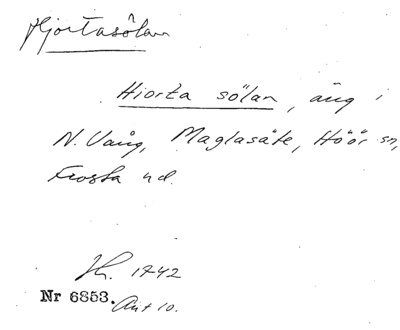 Hjortasölan
Hiorta sölan, äng i
N. Vång, Maglasäte, Höör sn,
Frosta hd.
Jh. 1742
Nr 6853. Akt 10.